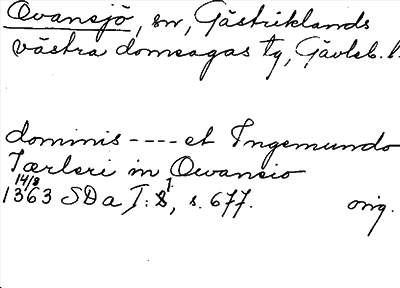 Ovansjö, sn, Gästriklands
västra domsagas tg, Gävleb. l.
dominis ---- et Ingemundo
Tærleri in Owansio
14/8
1363 SD a I:1, s. 677. orig.